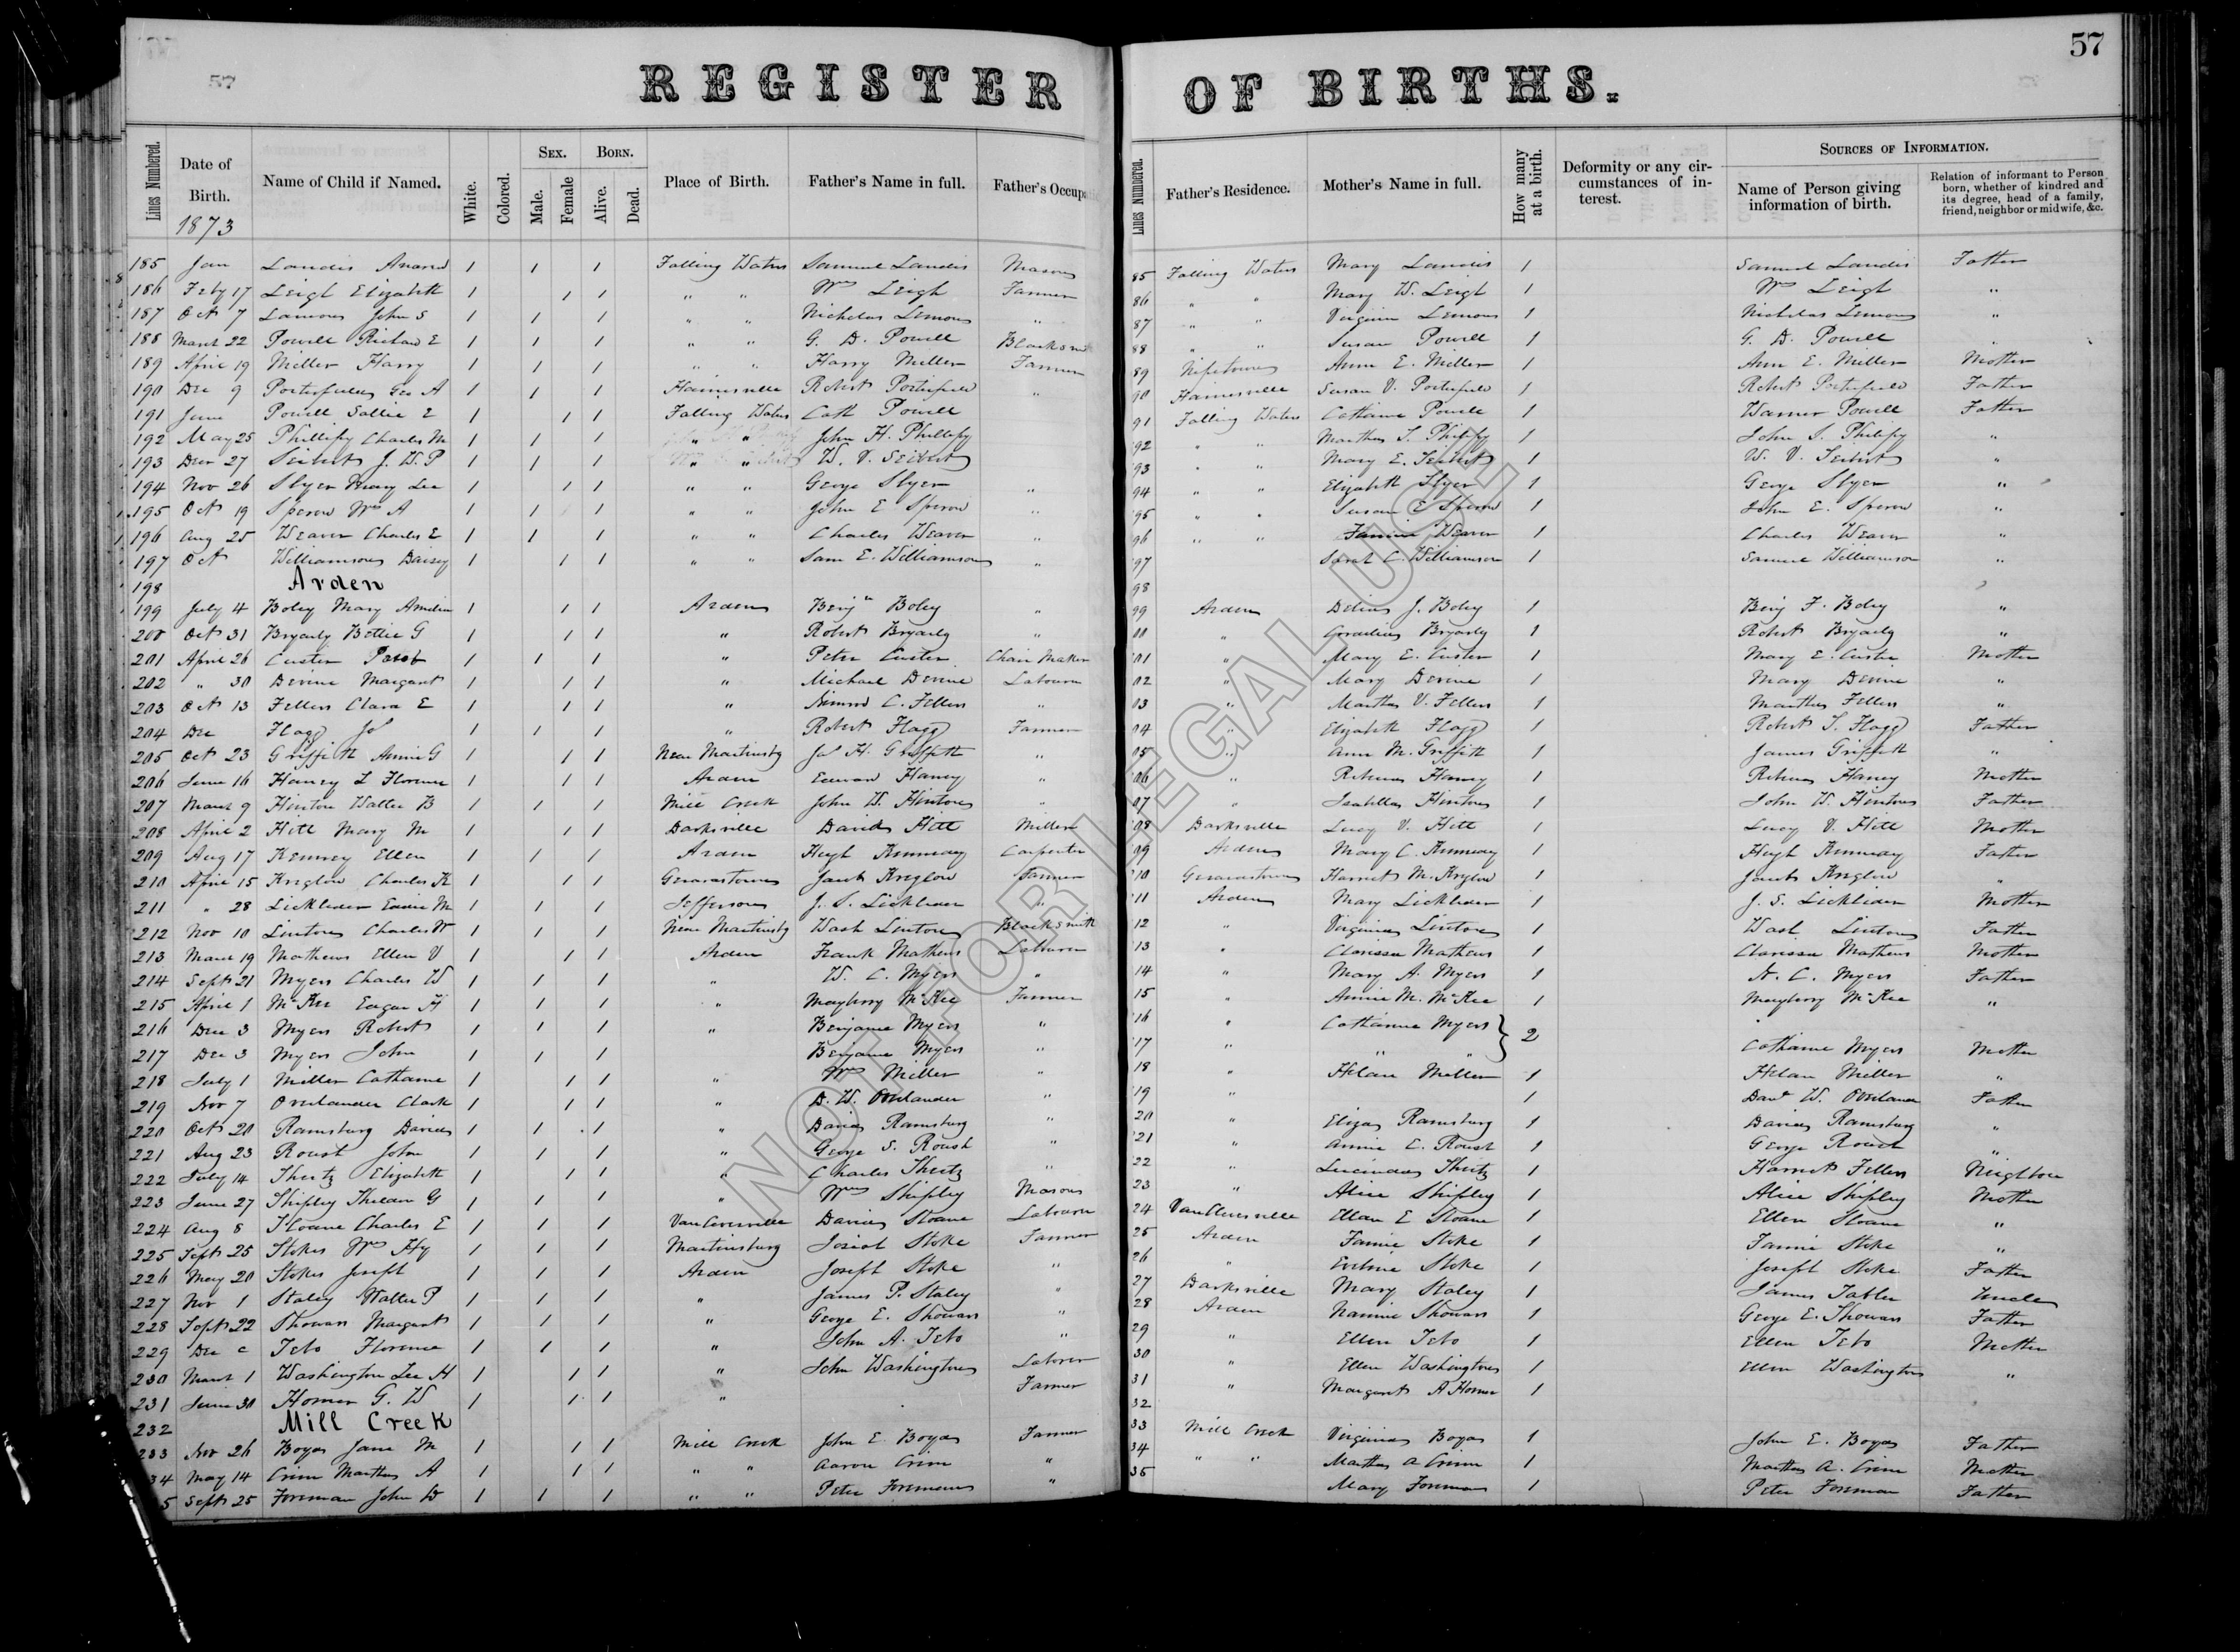 57
REGISTER OF BIRTHS.
Lines Numbered. Date of Birth. Name of Child if Named. White. Colored. Sex. Male. Female Born. Alive. Dead. Place of Birth. Father's Name in full. Father's Occupa
Lines Numbered. Father's Residence. Mother's Name in full. How many at a birth. Deformity or any circumstances of interest. Sources of Information. Name of Person giving information of birth. Relation of informant to Person born, whether of kindred and its degree, head of a family, friend, neighbor or midwife, &c.
1873
185 Jan Landis 1 1 1 Falling Waters Samuel Landis Mason 85 Falling Waters Mary Landis 1 Samuel Landis Father
186 Feby 17 Leigh Elizabeth 1 1 1 " " Wm Leigh Farmer 86 " " Mary W. Leigh 1 Wm Leigh "
187 Oct 7 Lemons John S 1 1 1 " " Nicholas Lemons " 87 " " Virginia Lemons 1 Nicholas Lemons "
188 March 22 Powell Richard E 1 1 1 " " G. D. Powell Blacksm 88 " " Susan Powell 1 G. D. Powell "
189 April 19 Miller Harry 1 1 1 " " Harry Miller Farmer 89 Nipetown Ann E. Miller 1 Ann E. Miller Mother
190 Dec 9 Porterfield Geo A 1 1 1 Hainesville Robert Porterfield " 90 Hainesville Susan V. Porterfield 1 Robert Porterfield Father
191 June Powell Sallie E 1 1 1 Falling Waters Cath Powell 91 Falling Waters Catharine Powell 1 Warner Powell Father
192 May 25 Phillipy Charles M 1 1 1 " " John H. Phillipy 92 " " Martha S. Philipy 1 John S. Philipy "
193 Decr 27 Seibert J. W. P 1 1 1 " " W. V. Seibert 93 " " Mary E. Seibert 1 W. V. Seibert "
194 Nov 26 Slyer Mary Lee 1 1 1 " " George Slyer " 94 " " Elizabeth Slyer 1 George Slyer "
195 Oct 19 Sperow Wm A 1 1 1 " " John E Sperow " 95 " " Susan E Sperow 1 John E. Sperow "
196 Aug 25 Weaver Charles E 1 1 1 " " Charles Weaver " 96 " " Fannie Weaver 1 Charles Weaver "
197 Oct Williamson Daisey 1 1 1 " " Sam E. Williamson " 97 Sarah C. Williamson 1 Samuel Williamson "
198 Arden 98
199 July 4 Boley Mary 1 1 1 Arden Benjn Boley " 99 Arden J. Boley 1 Benj F. Boley "
200 Oct 31 Bryarly Bettie G 1 1 1 " Robert Bryarly " 00 " Cornelius Bryarly 1 Robert Bryarly "
201 April 26 Custer 1 1 1 " Peter Custer Chair Maker 01 " Mary E. Custer 1 Mary E. Custer Mother
202 " 30 Devine Margaret 1 1 1 " Michael Devine Labourer 02 " Mary Devine 1 Mary Devine "
203 Oct 13 Fellers Clara E 1 1 1 " Nimrod C. Fellers " 03 " Martha V. Fellers 1 Martha Fellers "
204 Dec Flagg Js 1 1 1 " Robert Flagg Farmer 04 " Elizabeth Flagg 1 Robert S. Flagg Father
205 Oct 23 Griffith Annie G 1 1 1 Near Martinsbg Js H. Griffith " 05 " Ann M. Griffith 1 James Griffith "
206 June 16 Haney L Florence 1 1 1 Arden Edward Haney " 06 " Rebecca Haney 1 Rebecca Haney Mother
207 March 9 Hinton Walter B 1 1 1 Mill Creek John W. Hinton " 07 " Isabella Hinton 1 John W. Hinton Father
208 April 2 Hill Mary M 1 1 1 Darksville David Hill Miller 08 Darksville Lucy V. Hill 1 Lucy V. Hill Mother
209 Aug 17 Kenney Ellen 1 1 1 Arden Hugh Kennedy Carpenter 09 Arden Mary C. Kennedy 1 Hugh Kennedy Father
210 April 15 Kniglow Charles K 1 1 1 Gerardstown Jacob Kniglow Farmer 10 Gerardstown Harriet M. Kniglow 1 Jacob Kniglow "
211 " 28 Licklider Eddie M 1 1 1 Jefferson J. S. Licklider " 11 Arden Mary Licklider 1 J. S. Licklider Mother
212 Nov 10 Linton Charles W 1 1 1 Near Martinsbg Wash Linton Blacksmith 12 " Virginia Linton 1 Wash Linton Father
213 March 19 Mathews Ellen V 1 1 1 Arden Frank Mathews Labourer 13 " Clarissa Mathews 1 Clarissa Mathews Mother
214 Sept 21 Myers Charles W 1 1 1 " W. C. Myers " 14 " Mary A. Myers 1 W. C. Myers Father
215 April 1 McKee Edgar H 1 1 1 " Mayberry McKee Farmer 15 " Annie M. McKee 1 Mayberry McKee "
216 Dec 3 Myers Robert 1 1 1 " Benjamin Myers " 16 " Catharine Myers } 2
217 Dec 3 Myers John 1 1 1 Benjamin Myers " 17 " " " Catharine Myers Mother
218 July 1 Miller Catharine 1 1 1 " Wm Miller " 18 " Helan Miller 1 Helan Miller "
219 Nov 7 Overlander Clark 1 1 1 " D. W. Overlander " 19 " 1 Danl W. Overlander Father
220 Oct 20 Ramsburg David 1 1 1 " David Ramsburg " 20 " Eliza Ramsburg 1 David Ramsburg "
221 Aug 23 Roush John 1 1 1 " George S. Roush " 21 " Annie E. Roush 1 George Roush "
222 July 14 Shertz Elizabeth 1 1 1 " Charles Shertz " 22 " Lucinda Shertz 1 Harriet Fellers Neighbour
223 June 27 Shipley G 1 1 1 " Wm Shipley Mason 23 " Alice Shipley 1 Alice Shipley Mother
224 Aug 8 Sloane Charles E 1 1 1 VanCleveville David Sloane Labourer 24 VanCleveville Ellen E Sloane 1 Ellen Sloane "
225 Sept 25 Stokes Wm Hy 1 1 1 Martinsburg Josiah Stoke Farmer 25 Arden Fannie Stoke 1 Fannie Stoke "
226 May 20 Stokes Joseph 1 1 1 Arden Joseph Stoke " 26 " Eveline Stoke 1 Joseph Stoke Father
227 Nov 1 Staley Walter P 1 1 1 " James P. Staley " 27 Darksville Mary Staley 1 James Tabler Uncle
228 Sept 22 Showan Margaret 1 1 1 " George E. Showan " 28 Arden Nannie Showan 1 George E. Showan Father
229 Dec Tebo Florence 1 1 1 " John A. Tebo " 29 " Ellen Tebo 1 Ellen Tebo Mother
230 March 1 Washington Lee H 1 1 1 " John Washington Laborer 30 " Ellen Washington 1 Ellen Washington "
231 June 30 Homer G. W 1 1 1 " Farmer 31 " Margaret A Homer 1
232 Mill Creek 32
233 Nov 26 Boyd Jane M 1 1 1 Mill Creek John E. Boyd Farmer 33 Mill Creek Virginia Boyd 1 John E. Boyd Father
34 May 14 Crim Martha A 1 1 1 " " Aaron Crim " 34 " " Martha A Crim 1 Martha A. Crim Mother
5 Sept 25 Foreman John W 1 1 1 " " Peter Foreman " 35 Mary Foreman 1 Peter Foreman Father
NOT FOR LEGAL USE